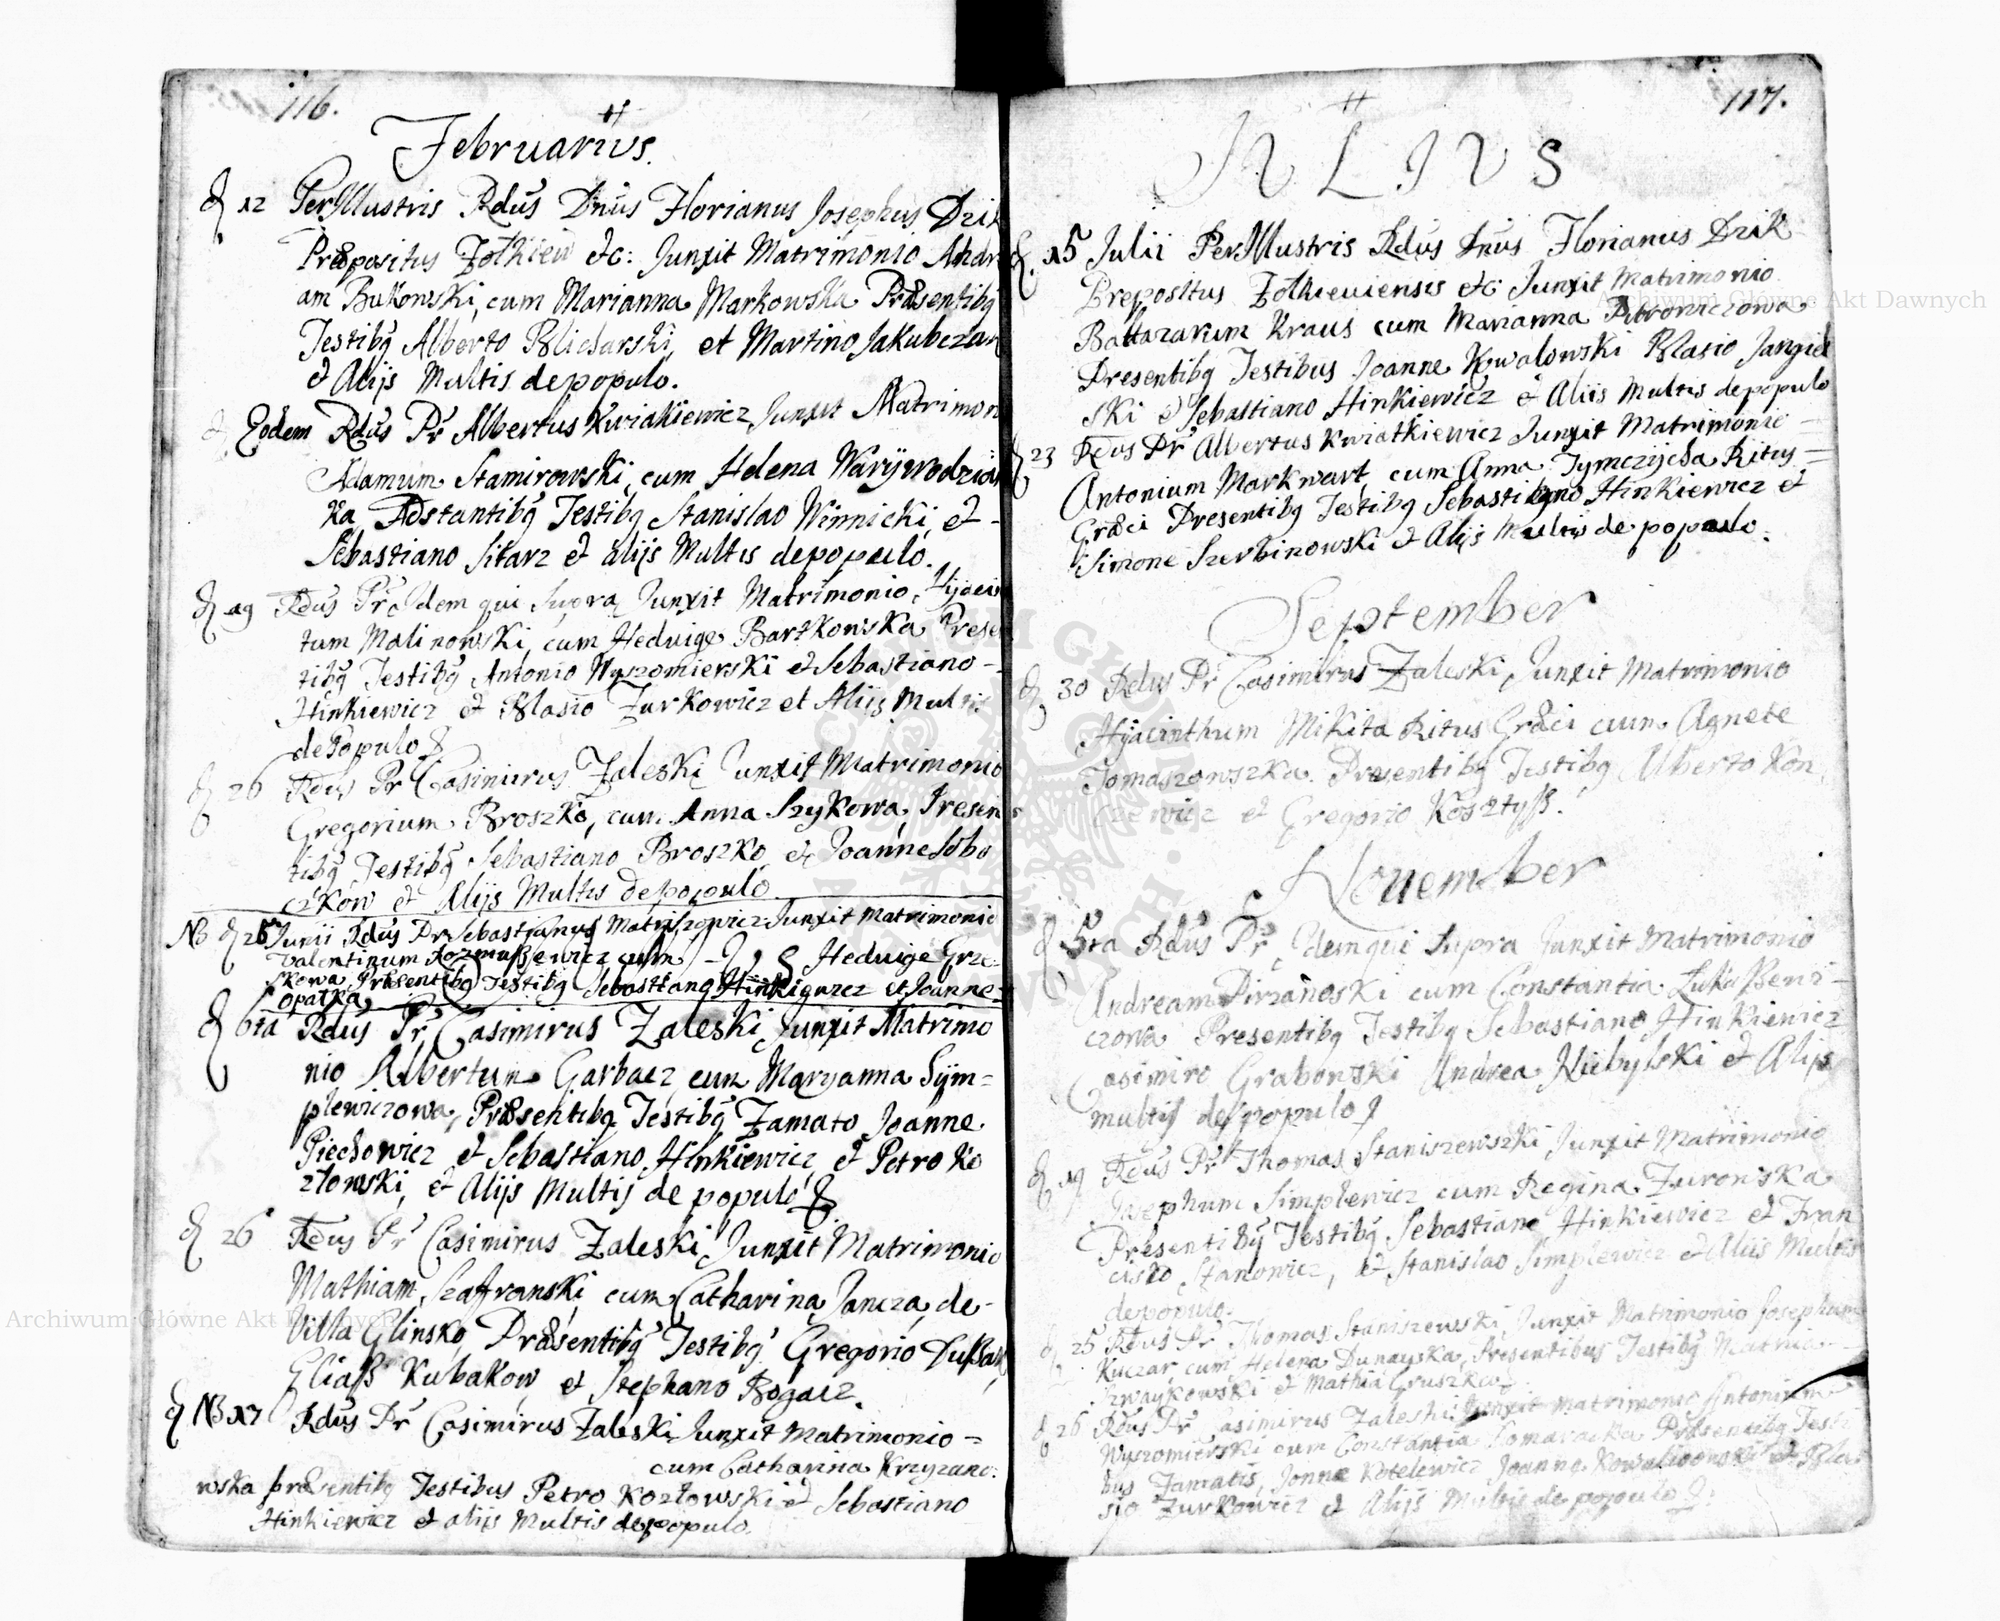 116.
Februarius.
D 12 PerIllustris Rdus Dnus Florianus Josephus Dzik
Præpositus Zolkiew etc: Junxit Matrimonio Andre
am Bukowski, cum Marianna Markowska Præsentibg
Testibg Alberto Blicharski, et Martino Jakubczak
et Alijs Multis depopulo.
D Eodem Rdus Pr Albertus Kwiatkiewicz Junxit Matrimon
Adamum Stamirowski, cum Helena
ka, Adstantibg Testibg Stanislao Winnicki, et -
Sebastiano Sitarz et alijs Multis depopulo.
D 19 Rdus Pr Idem qui Supra Junxit Matrimonio, Hyacin
tum Malinowski, cum Hedvige Bartkowska Presen
tibg Testibg Antonio Wyszomierski et Sebastiano -
Hinkiewicz et Blasio Zurkowicz et Aliis Multis
dePopulo
D 26 Rdus Pr Casimirus Zaleski Junxit Matrimonio
Gregorium Broszko, cum Anna Szykowa, Presen
tibg Testibg Sebastiano Broszko, et Joanne Sobo
czkow et Alijs Multis depopulo
NB D 26 Junii Rdus Pr Sebastianus Junxit Matrimonio
Valentinum cum Hedvige Grze-
skowa Præsentibg Testibg Sebastiano Hinkiewicz et Joanne
Opatka
D 6ta Rdus Pr Casimirus Zaleski Junxit Matrimo
nio Albertum Garbacz cum Maryanna Sym=
plewiczowa, Præsentibg Testibg Famato Joanne
Piechowicz et Sebastiano Hinkiewicz, et Petro Ko
złowski, et Alijs Multis de populo
D 26 Rdus Pr Casimirus Zaleski Junxit Matrimonio
Mathiam Szafranski, cum Catharina Jancza, de-
Villa Glinsko, Præsentibg Testibg Gregorio
Eliaß Kubakow et Stephano Bogacz.
D NB 17 Rdus Pr Casimirus Zaleski Junxit Matrimonio =
cum Catharina Krzyzano:
wska præsentibg Testibus Petro Kozłowski et Sebastiano
Hinkiewicz et alijs Multis depopulo.
117.
JULIUS
D. 15 Julii PerIllustris Rdus Dnus Florianus Dzik
Prepositus Zolkieviensis etc Junxit Matrimonio
Baltazarum Kraus cum Marianna Pitroniczowa
Presentibg Testibus Joanne Kowalowski Blasio Jangiel
ski et Sebastiano Hinkiewicz et Aliis Multis depopulo
D 23 Rdus Pr Albertus Kwiatkiewicz Junxit Matrimonio =
Antonium Markwart, cum Anna Ritus =
Græci Presentibg Testibg Sebastiano Hinkiewicz et
Simone Szerbinowski et Alijs Multis de populo.
September
D 30 Rdus Pr Casimirus Zaleski, Junxit Matrimonio
Hyacinthum Mikita Ritus Græci cum Agnete
Tomaszowszka. Presentibg Testibg Alberto Kon
czewicz et Gregorio Kosztyß.
November
D 5ta Rdus Pr, Idem qui Supra Junxit Matrimonio
Andream cum Constantia
czowa Presentibg Testibg Sebastiano Hinkiewicz
Casimiro Grabowski Andrea et Alijs
multis de populo
D 19 Rdus Pr Thomas Staniszewszki Junxit Matrimonio
Josephum Simplewicz cum Regina Zurowska
Presentibg Testibg Sebastiano Hinkiewicz et Fran
cisko Stanowicz, et Stanislao Simplewicz et Aliis Multis
depopulo.
D 25 Rdus Pr Thomas Staniszewski, Junxit Matrimonio Josephum
Kuczar, cum Helena Dunayska, Presentibus Testibg Mathia -
Szwaykowski et Mathia Gruszka
D 26 Rdus Pr Casimirus Zaleski Junxit Matrimonio Antonium
Wyszomierski cum Constantia Præsentibg Testi
bus Famatis, Jonne Kotelewicz Joanne et Bla
sio Zurkowicz et Alijs Multis de populo
Archiwum Główne Akt Dawnych
Archiwum Główne Akt Dawnych